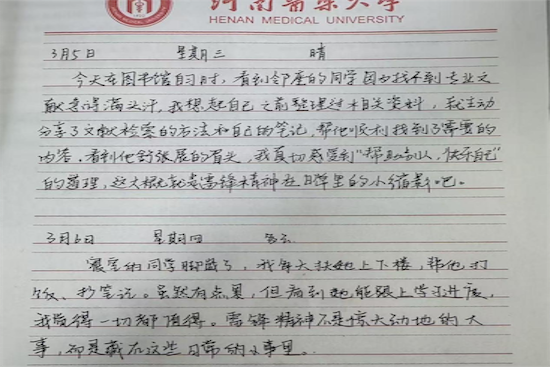 河南医药大学
HENAN MEDICAL UNIVERSITY
3月5日 星期三 晴
今天在图书馆自习时，看到邻座的同学因为找不到专业文
献急得满头汗，我想起自己之前整理过相关资料，我主动
分享了文献检索的方法和自己的笔记，帮他顺利找到了需要的
内容。看到他舒张展的眉头，我真切感受到“帮助别人，快乐自己”
的道理，这大概就是雷锋精神在日常里的小缩影吧。
3月6日 星期四 多云
寝室的同学脚崴了，我每天扶她上下楼，帮他打
饭、抄笔记。虽然有点累，但看到她能跟上学习进度，
我觉得一切都值得。雷锋精神不是惊天动地的大
事，却是藏在这些日常的小事里。